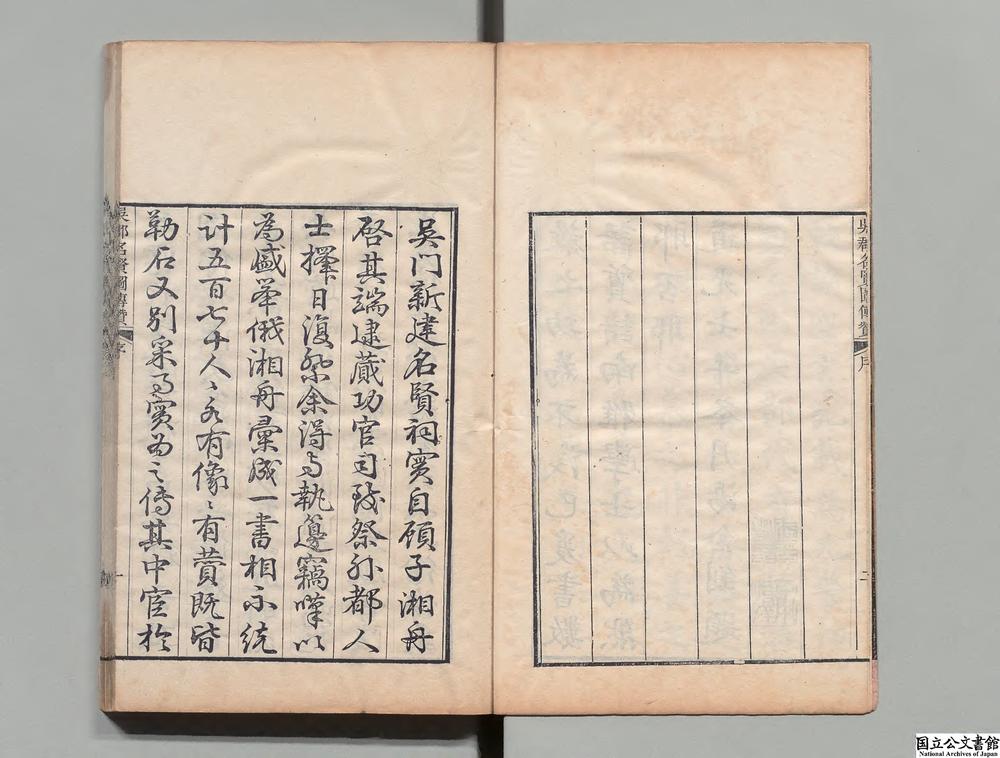 吳郡名賢圖傳贊
序
二
吳门新建名賢祠實自顧子湘舟
啓其端逮蕆功官司致祭外都人
士擇日復祭余得与執籩竊嘆以
為盛举俄湘舟彙成一書相示統
計五百七十人〻各有像〻有贊既皆
勒石又别采事實為之傳其中宦於
吳郡名賢圖傳贊
序
一
国立公文書館
National Archives of Japan